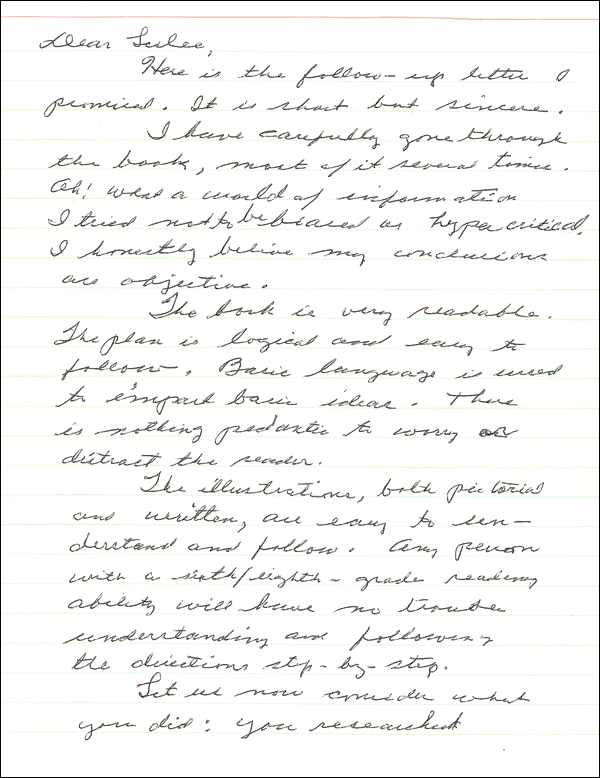 Dear Leslee,
Here is the follow-up letter I
promised. It is short but sincere.
I have carefully gone through
the book, most of it several times.
Oh! what a world of information
I tried not to be biased or hypercritical,
I honestly believe my conclusions
are objective.
The book is very readable.
The plan is logical and easy to
follow. Basic language is used
to impart basic ideas. There
is nothing pedantic to worry or
distract the reader.
The illustrations, both pictorial
and written, are easy to un-
derstand and follow. Any person
with a sixth/eighth-grade reading
ability will have no trouble
understanding and following
the directions step-by-step.
Let us now consider what
you did: you researched